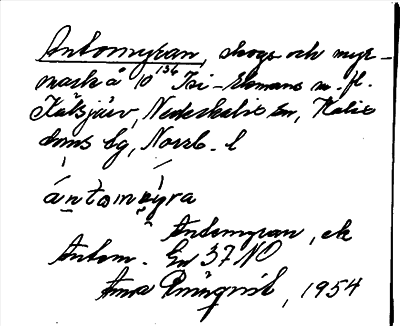 Antomyran, skogs och myr-
mark å 10¹³⁶ Isi-Ekmans m. fl.
Kätsjärv, Nederkalix sn, Kalix
doms lg, Norrb. l
ántomýra
Antomyran, ek
Antom. Gd 37 NO
Anna 1954